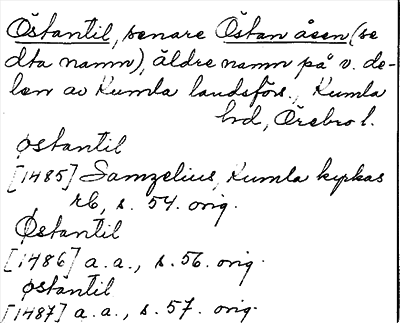 Östantil, senare Östan åsen (se
d t a namn), äldre namn på v. de-
len av Kumla landsförs., Kumla
hrd, Örebro l.
østantil
[1485] Samzelius, Kumla kyrkas
rb, s. 54. orig.
Østantil
[1486] a.a., s. 56. orig.
østantil
[1487] a.a., s. 57. orig.